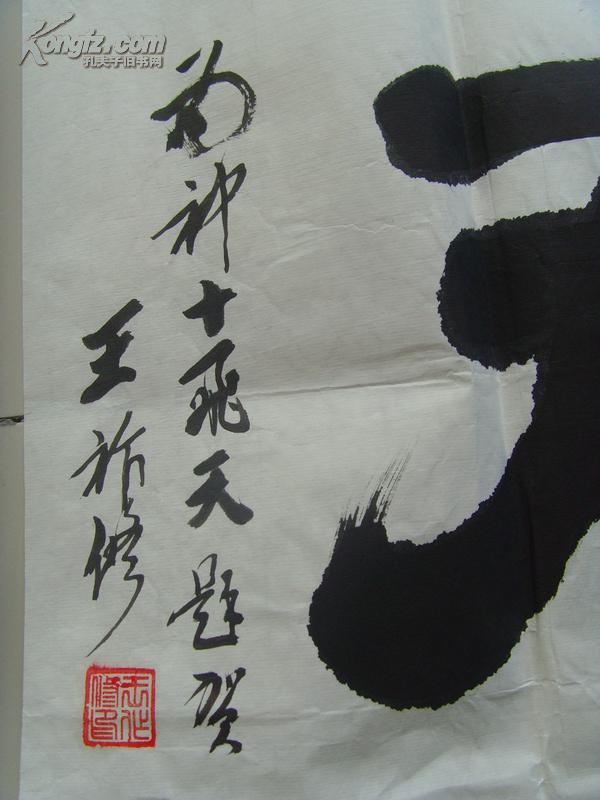 Kongfz.com
孔夫子旧书网
為神十飛天題賀
王祚修